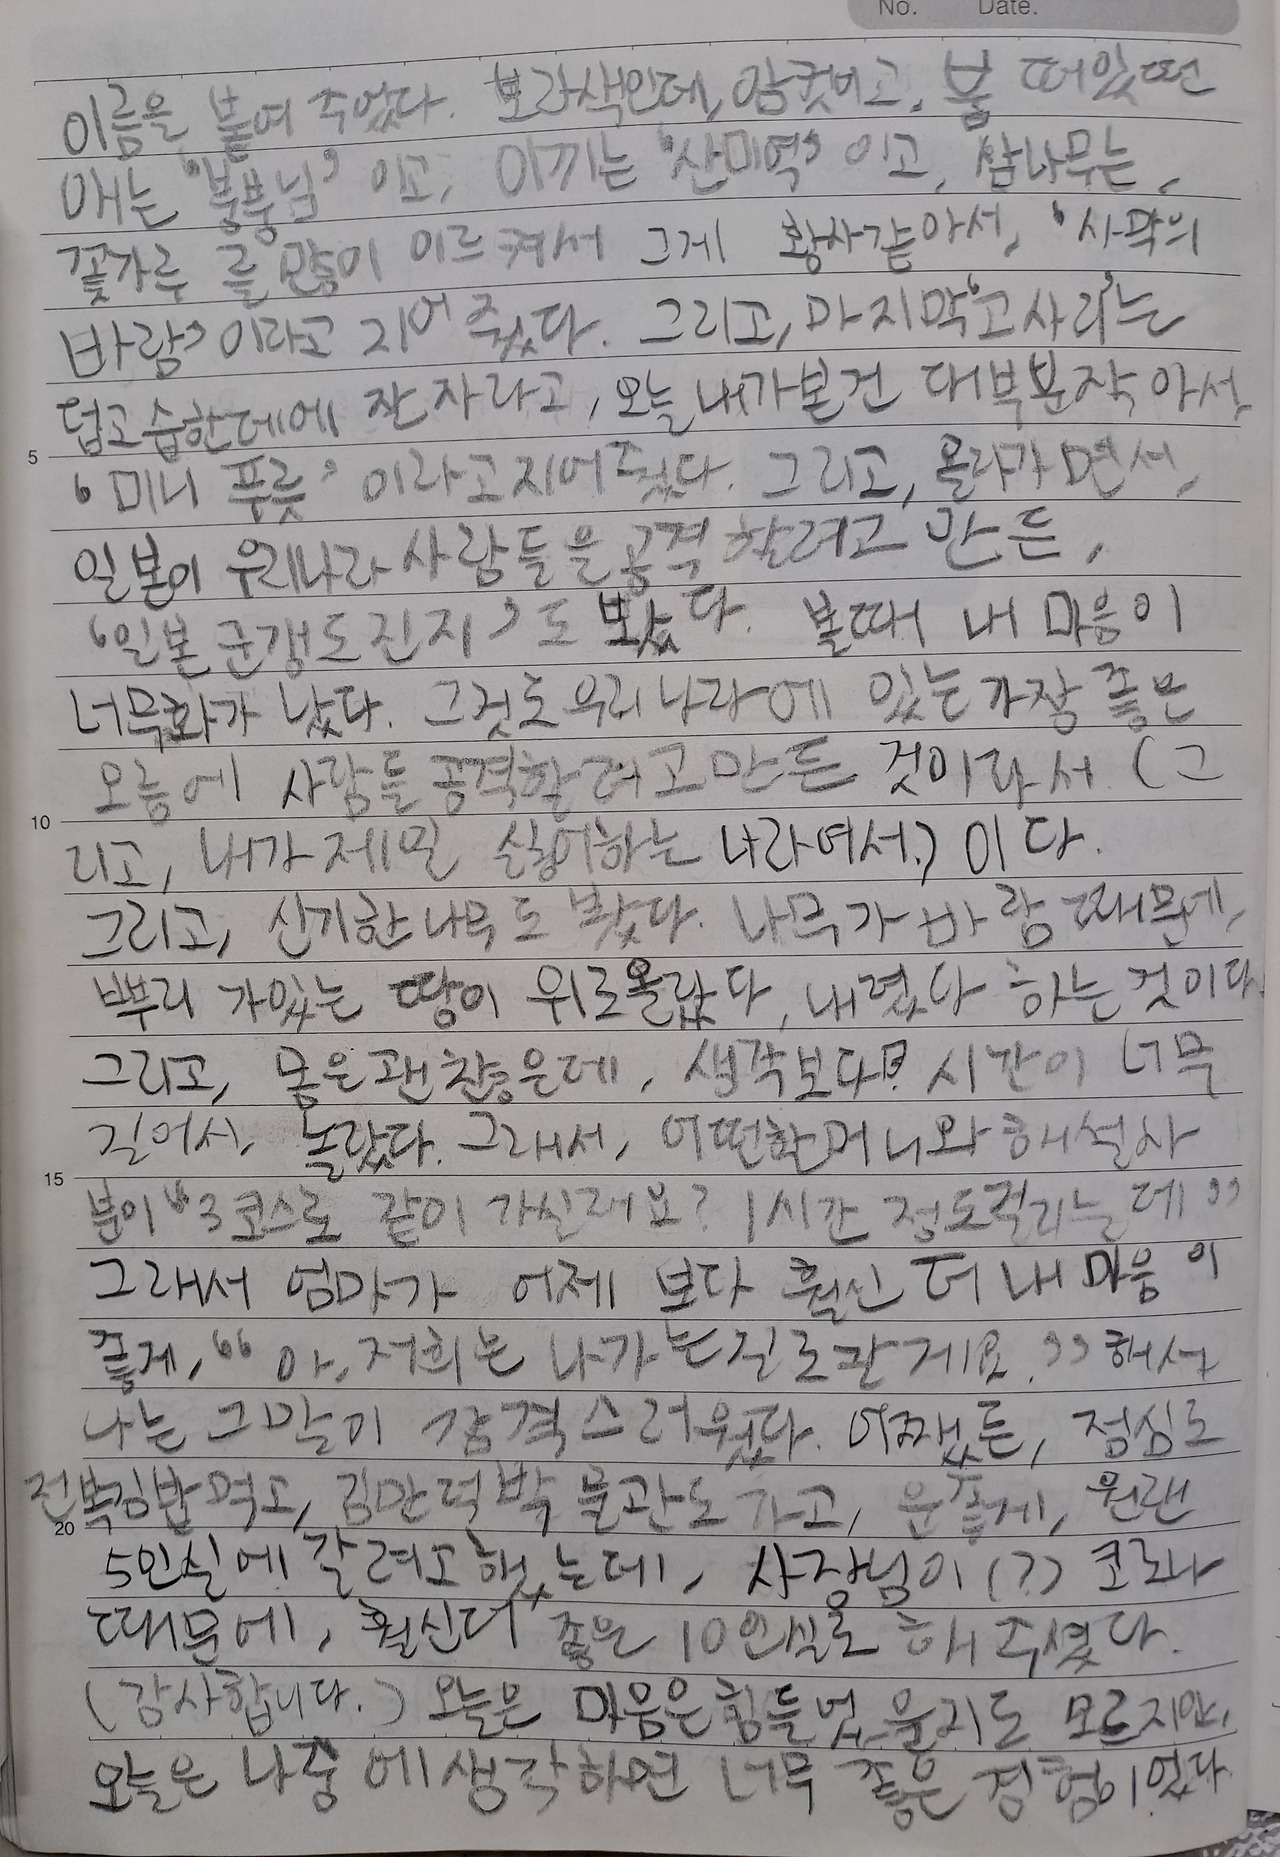 No. Date.
이름을 붙여 주었다. 보라색인데, 암컷이고, 붕 떠있떤
애는 "붕붕님" 이고, 이끼는 '산미역' 이고, 삼나무는,
꽃가루 를 많이 이르켜서 그게 황사같아서, '사막의
바람' 이라고 지어 줬다. 그리고, 마지막 '고사리'는
덥고 습한데에 잔자라고, 오늘 내가본건 대부분작아서,
'미니 푸릇' 이라고지어줬다. 그리고, 올라가면서,
일본이 우리나라 사람들을 공격할려고 만든,
'일본군갱도진지' 도 봤다. 볼때 내 마음이
너무화가 났다. 그것도우리나라에 있는가장 좋은
오름에 사람들공격할려고만든 것이라서. (그
리고, 내가제일 싫어하는 나라여서.) 이다.
그리고, 신기한나무도 봤다. 나무가 바람때문에,
뿌리 가있는 땅이 위로올랐다, 내렸다 하는것이다.
그리고, 몸은괜찮은데, 생각보다! 시간이 너무
길어서, 놀랐다. 그래서, 어떤할머니와 해설사
분이 "3코스로 같이 가실래요? 1시간 정도걸리는데"
그래서 엄마가 어제 보다 훨신 더 내 마음 이
좋게, "아, 저희는 나가는길로갈게요." 해서
나는 그말이 감격스러웠다. 어쨌든, 점심도
전복김밥먹고, 김만덕박물관도 가고, 운좋게, 원랜
5인실에 갈려고했는데, 사장님이(?) 코로나
때문에, 훨신더 좋은 10인실로 해 주셨다.
(감사합니다.) 오늘은 마음은힘들었을지도 모르지만,
오늘은 나중에생각하면 너무 좋은 경험이었다.
5
10
15
20